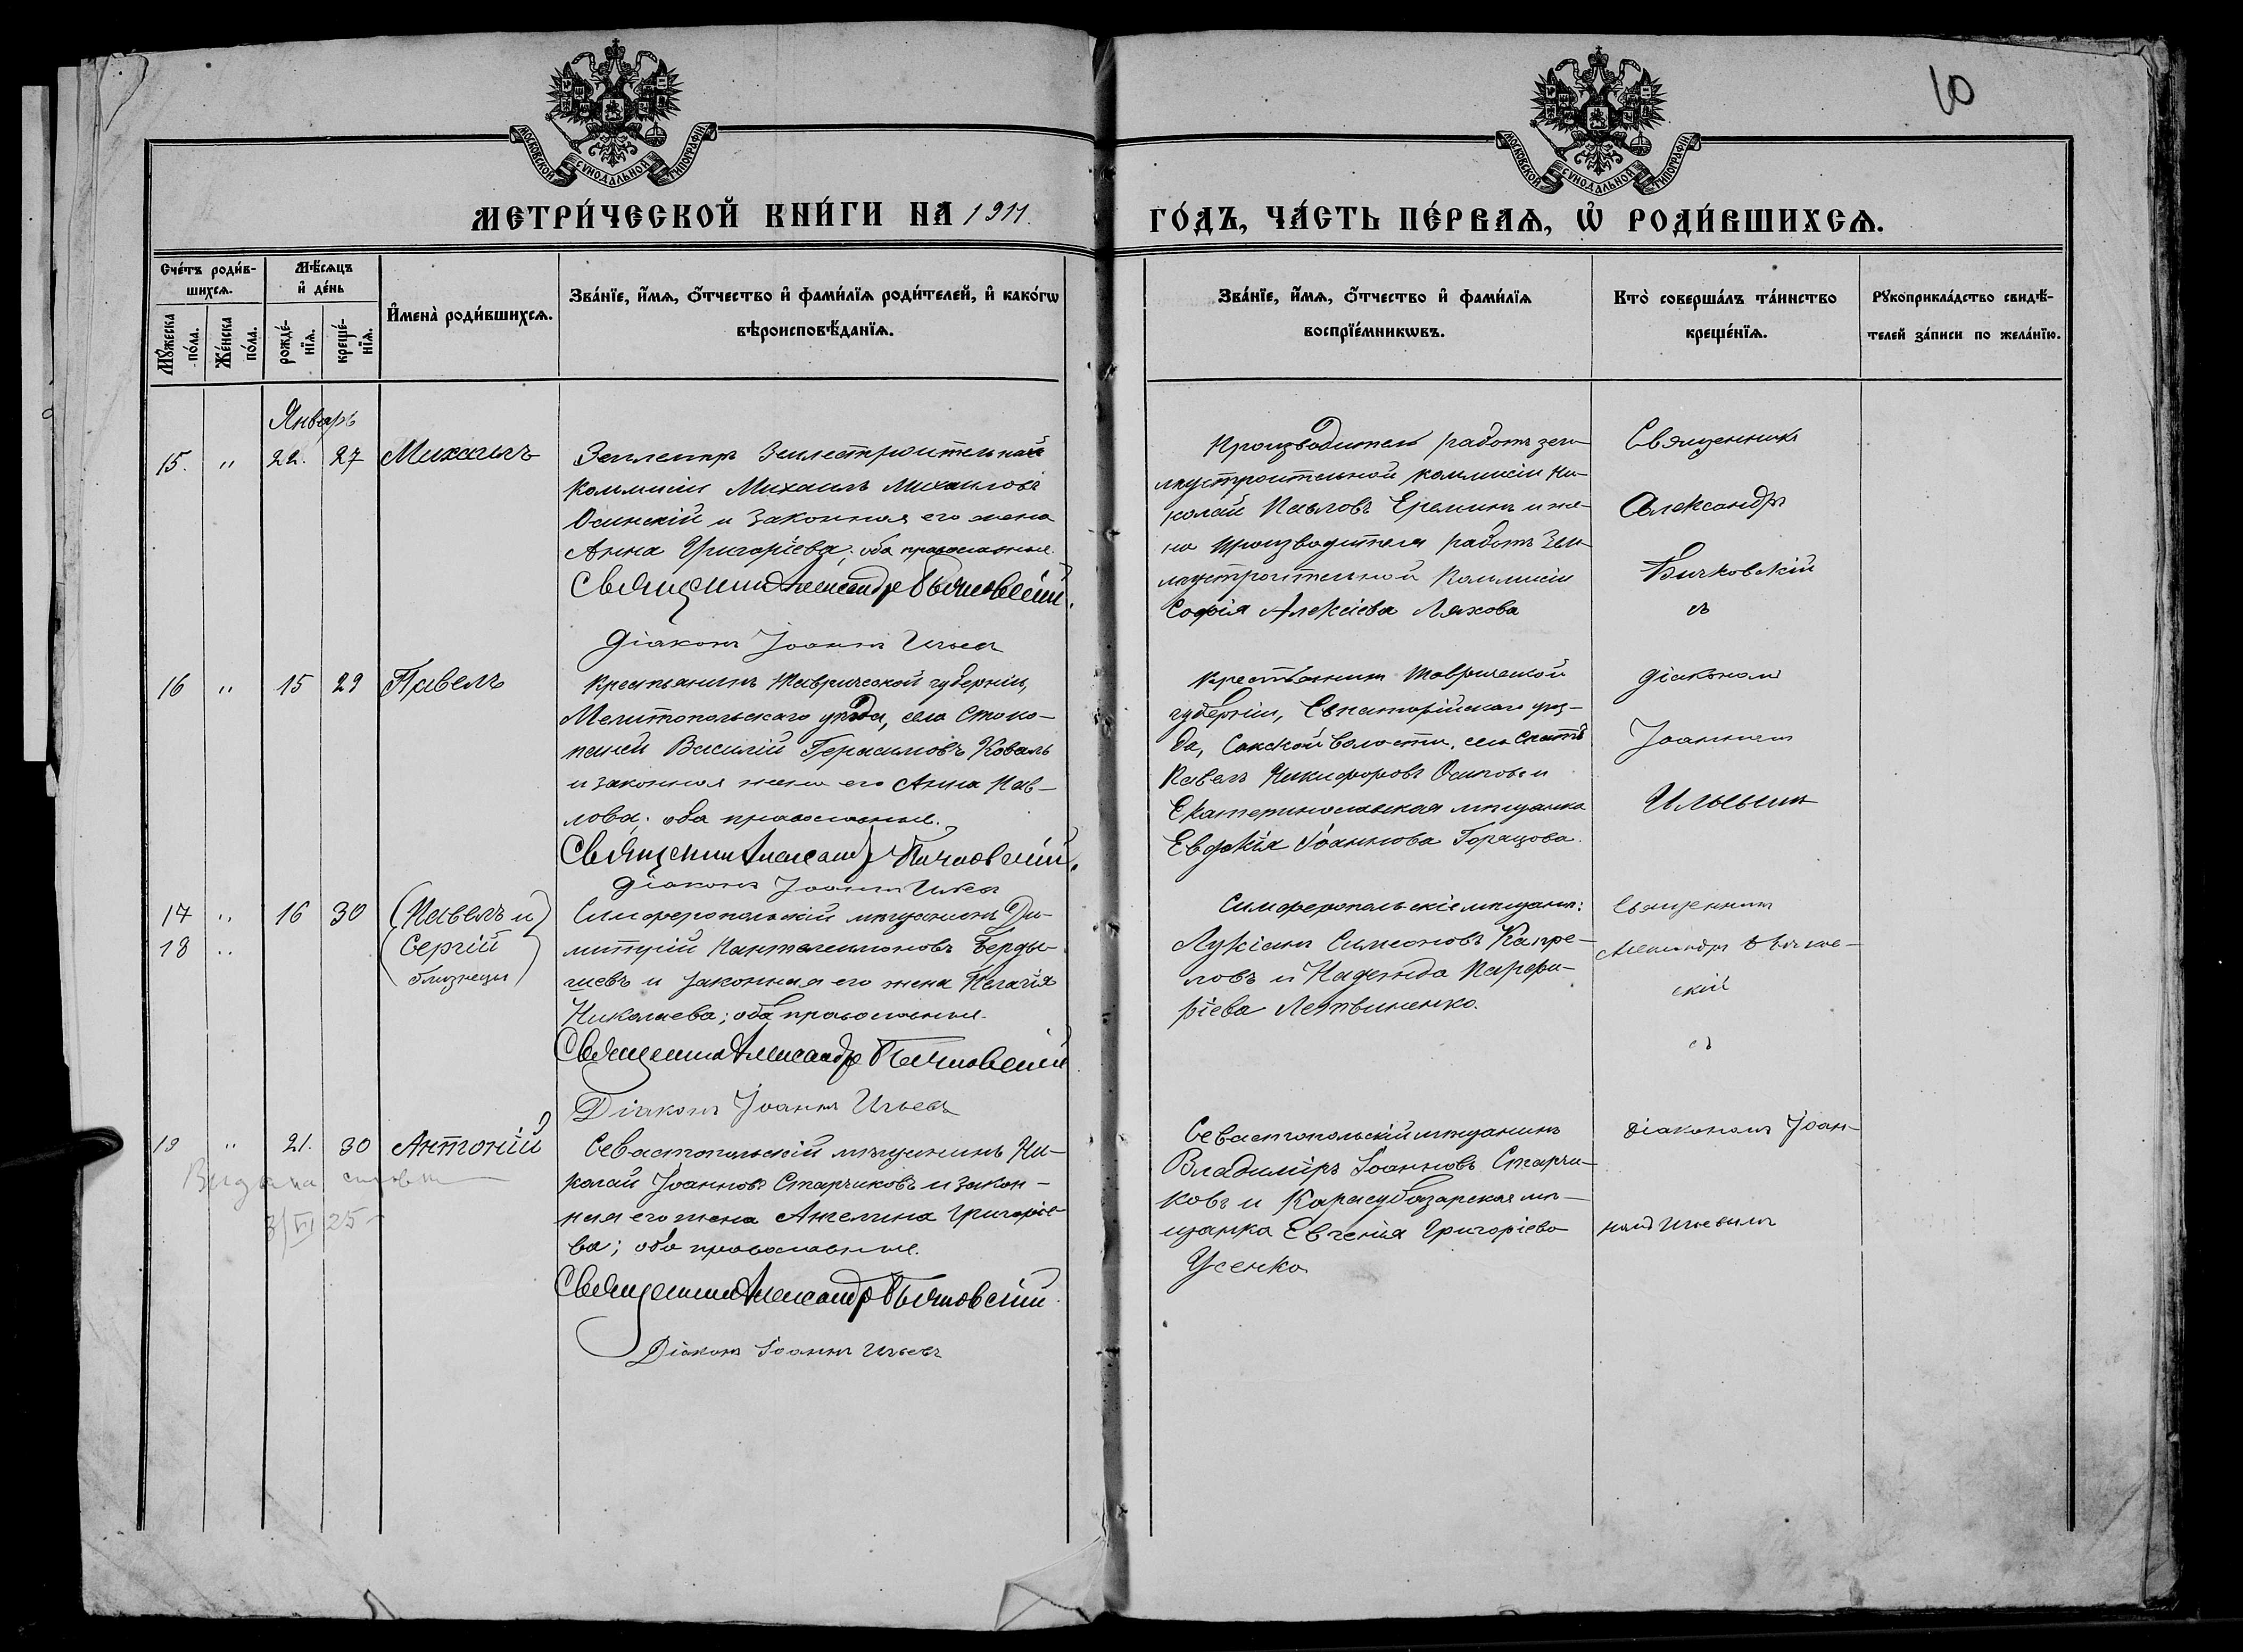 10
МОСКОВСКОЙ СѴНОДАЛЬНОЙ ТИПОГРАФІИ.
МОСКОВСКОЙ СѴНОДАЛЬНОЙ ТИПОГРАФІИ.
МЕТРИ́ЧЕСКОЙ КНИ́ГИ НА 1911.
ГО́ДЪ, ЧА́СТЬ ПЕ́РВАѦ, Ѽ РОДИ́ВШИХСѦ.
Сче́тъ роди́в-
шихсѧ.
Мꙋ́жеска
по́ла.
Же́нска
по́ла.
Мѣ́сѧцъ
и҆ де́нь
рожде́-
нїѧ.
креще́-
нїѧ.
И҆мена̀ роди́вшихсѧ.
Зва́нїе, и҆́мѧ, ѻ҆́тчество и҆ фами́лїѧ роди́телей, и҆ како́гѡ
вѣроисповѣ́данїѧ.
Зва́нїе, и҆́мѧ, ѻ҆́тчество и҆ фами́лїѧ
воспрїе́мникѡвъ.
Кто̀ соверша́лъ та́инство
креще́нїѧ.
Рꙋкоприкла́дство свидѣ́-
телей за́писи по жела́нїю.
Январь
15. " 22. 27 Михаилъ
Землемѣръ Землеустроительной
Коммисіи Михаилъ Михаиловъ
Осинскій и законная его жена
Анна Григоріева; оба православные.
Священникъ Александръ Бычковскій.
Діаконъ Іоаннъ Ильевъ
Производитель работъ зем-
леустроительной коммисіи Ни-
колай Павловъ Ереминъ и же-
на производителя работъ Зем-
леустроительной Коммисіи
Софія Алексіева Ляхова
Священникъ
Александръ
Бычковскій
съ
16 " 15 29 Павелъ
Крестьянинъ Таврической губерніи,
Мелитопольскаго уѣзда, села Стоко-
паней Василій Герасимовъ Коваль
и законная жена его Анна Пав-
лова; оба православные.
Священникъ Александръ Бычковскій.
Діаконъ Іоаннъ Ильевъ
Крестьянинъ Таврической
губерніи, Евпаторійскаго уѣз-
да, Сакской волости, села
Павелъ Никифоровъ Осиповъ и
Екатеринославская мѣщанка
Евдокія Іоаннова Горащова.
діакономъ
Іоанномъ
Ильевымъ
17 " 16 30 (Павелъ и)
18 " (Сергій)
близнецы
Симферопольскій мѣщанинъ Ди-
митрій Пантелеимоновъ Берды-
шевъ и законная его жена Пелагія
Николаева; оба православные.
Священникъ Александръ Бычковскій
Діаконъ Іоаннъ Ильевъ
Симферопольскіе мѣщане:
Лукіанъ Симеоновъ Капре-
ловъ и Надежда Парфи-
ріева Летвиненко.
Священникъ
Александръ Бычков-
скій
съ
19 " 21. 30 Антоній
Выдана
3/VI 25
Севастопольскій мѣщанинъ Ни-
колай Іоанновъ Старчиковъ и закон-
ная его жена Ангелина Григоріе-
ва; оба православные.
Священникъ Александръ Бычковскій.
Діаконъ Іоаннъ Ильевъ
Севастопольскій мѣщанинъ
Владиміръ Іоанновъ Старчи-
ковъ и Карасубазарская мѣ-
щанка Евгенія Григоріева
Усенко
діакономъ Іоан-
номъ Ильевымъ